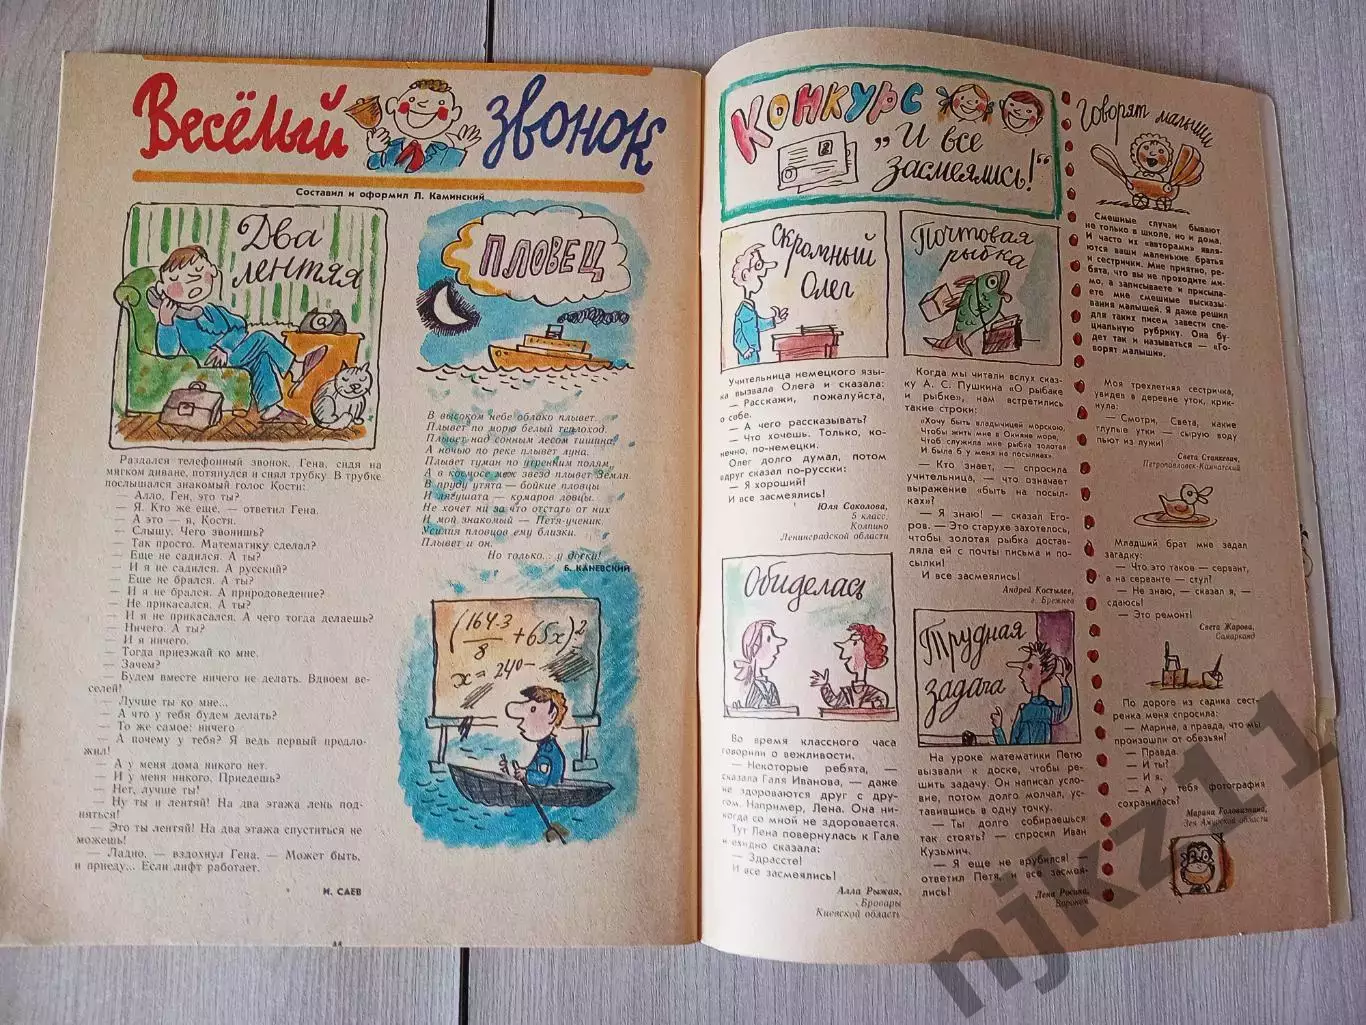 Весёлый звонок
Составил и оформил Л. Каминский
Два
лентяя
Раздался телефонный звонок. Гена, сидя на
мягком диване, потянулся и снял трубку. В трубке
послышался знакомый голос Кости:
— Алло, Ген, это ты?
— Я. Кто же еще, — ответил Гена.
— А это — я, Костя.
— Слышу. Чего звонишь?
— Так просто. Математику сделал?
— Еще не садился. А ты?
— И я не садился. А русский?
— Еще не брался. А ты?
— И я не брался. А природоведение?
— Не прикасался. А ты?
— И я не прикасался. А чего тогда делаешь?
— Ничего. А ты?
— И я ничего.
— Тогда приезжай ко мне.
— Зачем?
— Будем вместе ничего не делать. Вдвоем ве-
селей!
— Лучше ты ко мне...
— А что у тебя будем делать?
— То же самое: ничего
— А почему у тебя? Я ведь первый предло-
жил!
— А у меня дома никого нет.
— И у меня никого. Приедешь?
— Нет, лучше ты!
— Ну ты и лентяй! На два этажа лень под-
няться!
— Это ты лентяй! На два этажа спуститься не
можешь!
— Ладно, — вздохнул Гена. — Может быть,
и приеду... Если лифт работает.
И. САЕВ
44
ПЛОВЕЦ
В высоком небе облако плывет.
Плывет по морю белый теплоход.
Плывет над сонным лесом тишина,
А ночью по реке плывет луна.
Плывет туман по утренним полям,
А в космосе меж звезд плывет Земля.
В пруду утята — бойкие пловцы
И лягушата — комаров ловцы.
Не хочет ни за что отстать от них
И мой знакомый — Петя-ученик.
Усилия пловцов ему близки.
Плывет и он.
Но только... у доски!
Б. КАНЕВСКИЙ
(164·3/8 + 65x)·2
x = 240 —
Конкурс
„И все
засмеялись!“
Скромный
Олег
Учительница немецкого язы-
ка вызвала Олега и сказала:
— Расскажи, пожалуйста,
о себе.
— А чего рассказывать?
— Что хочешь. Только, ко-
нечно, по-немецки.
Олег долго думал, потом
вдруг сказал по-русски:
— Я хороший!
И все засмеялись!
Юля Соколова,
5 класс,
Колпино
Ленинградской области
Обиделась
Во время классного часа
говорили о вежливости.
— Некоторые ребята, —
сказала Галя Иванова, — даже
не здороваются друг с дру-
гом. Например, Лена. Она ни-
когда со мной не здоровается.
Тут Лена повернулась к Гале
и ехидно сказала:
— Здрассте!
И все засмеялись!
Алла Рыжая,
Бровары
Киевской область
Почтовая
рыбка
Когда мы читали вслух сказ-
ку А. С. Пушкина «О рыбаке
и рыбке», нам встретились
такие строки:
«Хочу быть владычицей морскою,
Чтобы жить мне в Окияне море,
Чтоб служила мне рыбка золотая
И была б у меня на посылках».
— Кто знает, — спросила
учительница, — что означает
выражение «быть на посыл-
ках»?
— Я знаю! — сказал Его-
ров. — Это старухе захотелось,
чтобы золотая рыбка достав-
ляла ей с почты письма и по-
сылки!
И все засмеялись!
Андрей Костылев,
г. Брежнев
Трудная
задача
На уроке математики Петю
вызвали к доске, чтобы ре-
шить задачу. Он написал усло-
вие, потом долго молчал, ус-
тавившись в одну точку.
— Ты долго собираешься
так стоять? — спросил Иван
Кузьмич.
— Я еще не врубился! —
ответил Петя, и все засмея-
лись!
Лена
Воронеж
Говорят малыши
Смешные случаи бывают
не только в школе, но и дома.
И часто их «авторами» явля-
ются ваши маленькие братья
и сестрички. Мне приятно, ре-
бята, что вы не проходите ми-
мо, а записываете и присыла-
ете мне смешные высказы-
вания малышей. Я даже решил
для таких писем завести спе-
циальную рубрику. Она бу-
дет так и называться — «Го-
ворят малыши».
Моя трехлетняя сестричка,
увидев в деревне уток, крик-
нула:
— Смотри, Света, какие
глупые утки — сырую воду
пьют из лужи!
Света Станкевич,
Петропавловск-Камчатский
Младший брат мне задал
загадку:
— Что это такое — сервант,
а на серванте — стул?
— Не знаю, — сказал я, —
сдаюсь!
— Это ремонт!
Света Жарова,
Самарканд
По дороге из садика сест-
ренка меня спросила:
— Марина, а правда, что мы
произошли от обезьян?
— Правда.
— И ты?
— И я.
— А у тебя фотография
сохранилась?
Марина Головизнина,
Зея Амурской области
njkz11